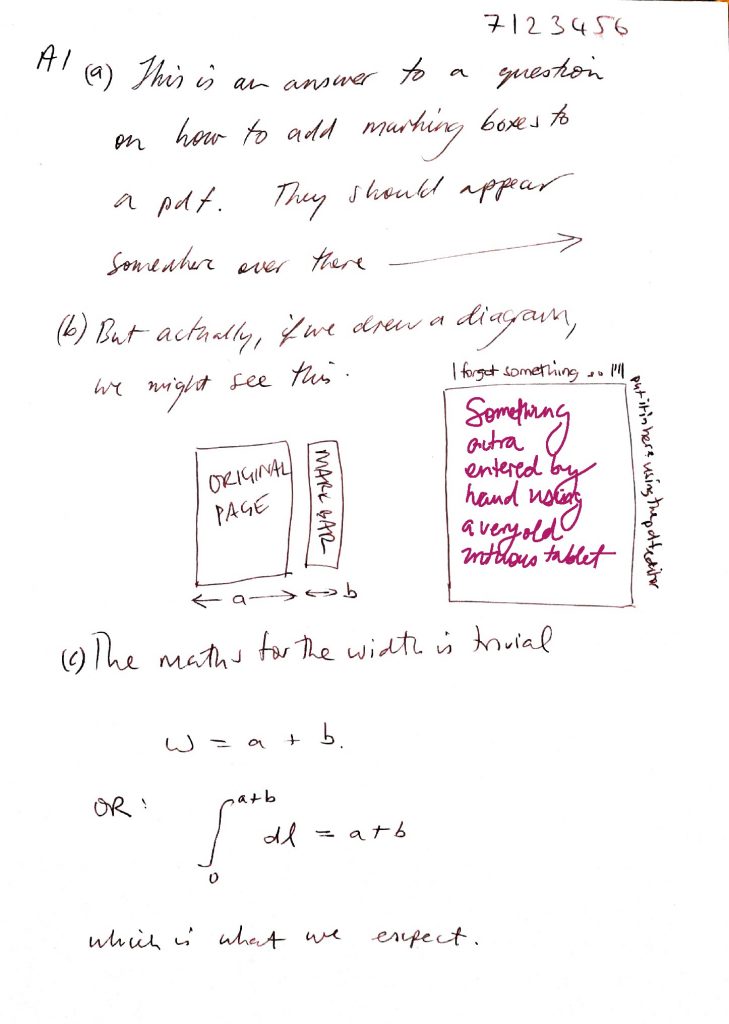 7123456
A1 (a) This is an answer to a question
on how to add marking boxes to
a pdf. They should appear
somewhere over there
(b) But actually, if we drew a diagram,
we might see this.
I forgot something .. !!!!
put it in here using the pdf editor
Something
extra
entered by
hand using
a very old
intuous tablet
ORIGINAL
PAGE
MARK BAR
a
b
(c) The maths for the width is trivial
w = a + b.
OR:
∫₀ᵃ⁺ᵇ dl = a+b
which is what we expect.